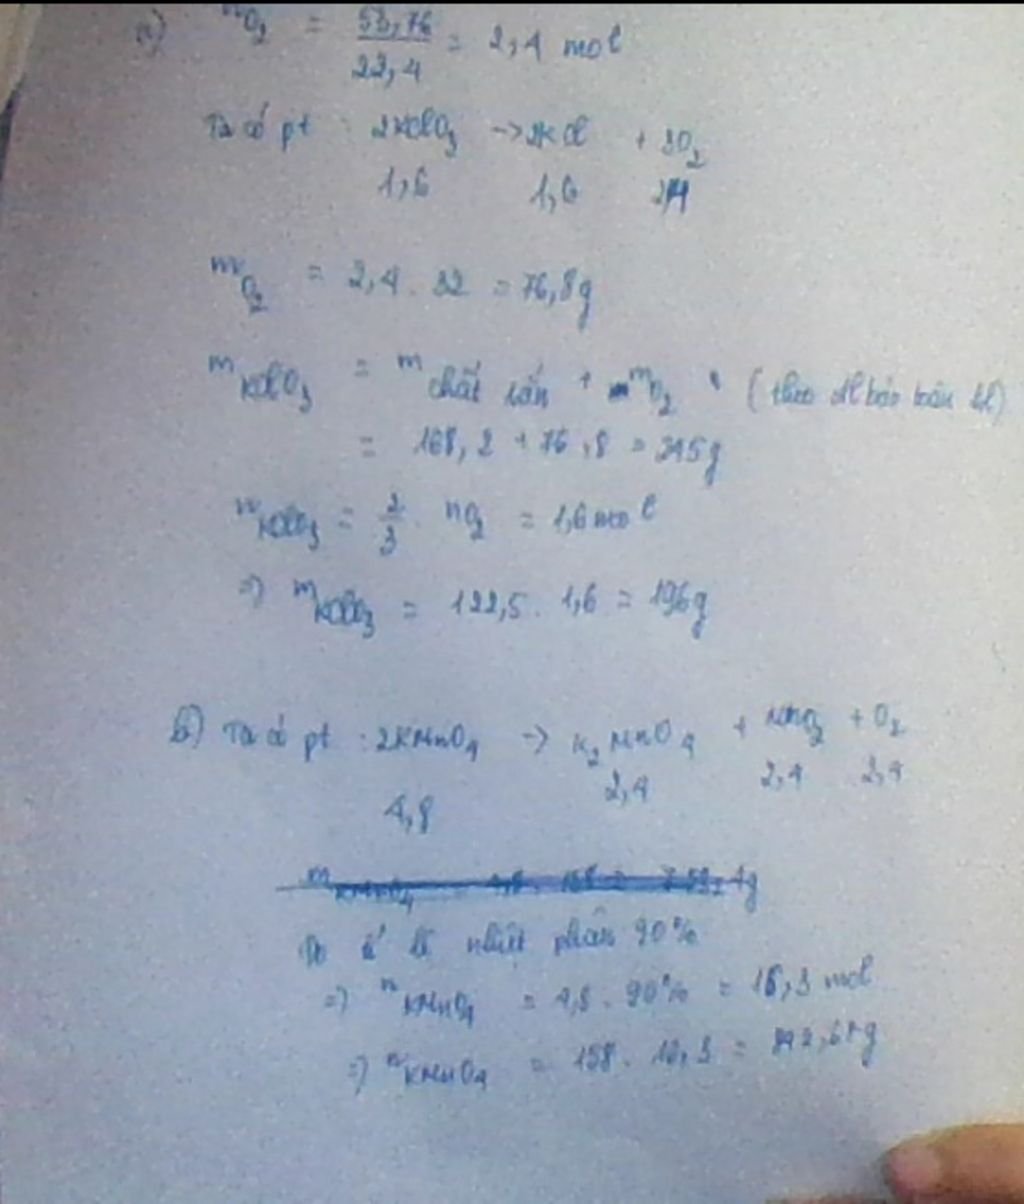 a) nO2 = 53,76 / 22,4 = 2,4 mol
Ta có pt : 2KClO3 -> 2KCl + 3O2
1,6 1,6 2,4
mO2 = 2,4 . 32 = 76,8g
mKClO3 = m chất rắn + mO2 (theo đl bảo toàn kl)
= 168,2 + 76,8 = 245g
nKClO3 = 2/3 . nO2 = 1,6 mol
=> mKClO3 = 122,5 . 1,6 = 196g
b) Ta có pt : 2KMnO4 -> K2MnO4 + MnO2 + O2
4,8 2,4 2,4 2,4
nhiệt phân 90%
=> nKMnO4 = 4,8 . 90% = mol
=> nKMnO4 = 158 . =